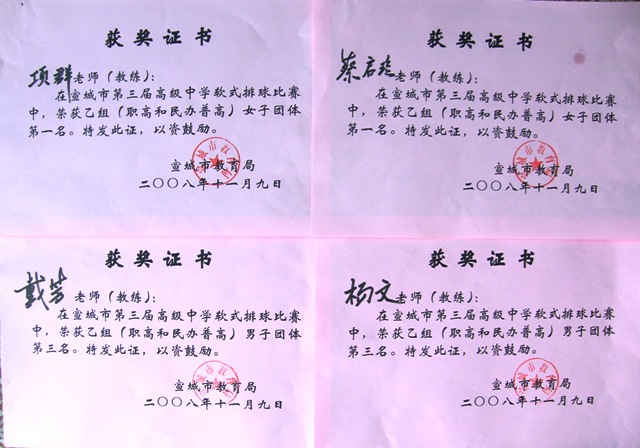 获奖证书
项群老师（教练）：
在宣城市第三届高级中学软式排球比赛
中，荣获乙组（职高和民办普高）女子团体
第一名。特发此证，以资鼓励。
宣城市教育局
二〇〇八年十一月九日
获奖证书
蔡启老师（教练）：
在宣城市第三届高级中学软式排球比赛
中，荣获乙组（职高和民办普高）女子团体
第一名。特发此证，以资鼓励。
宣城市教育局
二〇〇八年十一月九日
获奖证书
戴芳老师（教练）：
在宣城市第三届高级中学软式排球比赛
中，荣获乙组（职高和民办普高）男子团体
第三名。特发此证，以资鼓励。
宣城市教育局
二〇〇八年十一月九日
获奖证书
杨文老师（教练）：
在宣城市第三届高级中学软式排球比赛
中，荣获乙组（职高和民办普高）男子团体
第三名。特发此证，以资鼓励。
宣城市教育局
二〇〇八年十一月九日